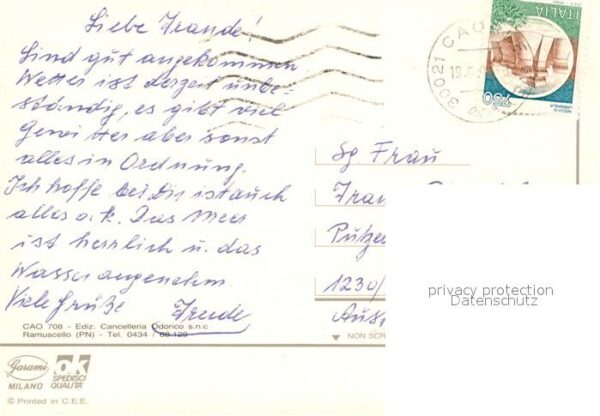 Liebe Frande!
Sind gut angekommen
Wetter ist derzeit unbe-
ständig, es gibt viel
Gewitter aber sonst
alles in Ordnung.
Ich hoffe bei Dir ist auch
alles o.k. Das Meer
ist herrlich u. das
Wasser angenehm
Viele Grüße
Sg. Frau
1230/
ITALIA
30021 CAO
750
CAO 708 - Ediz. Cancelleria Odorico s.n.c
Ramuscello (PN) - Tel. 0434 / 68.129
NON SCR
Garami
MILANO
ok
SPEDISCI
QUALITÀ
© Printed in C.E.E.
privacy protection
Datenschutz